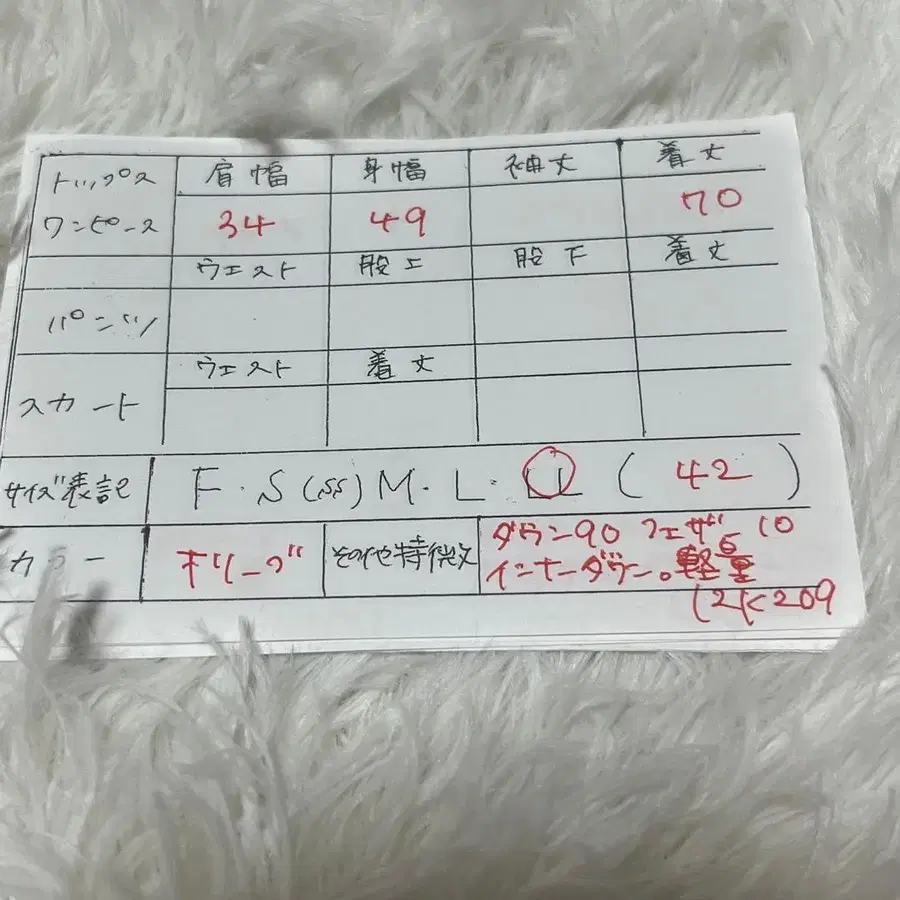 トップス 肩幅 身幅 袖丈 着丈
ワンピース 34 49 70
ウエスト 股上 股下 着丈
パンツ
ウエスト 着丈
スカート
サイズ表記 F・S(SS)M・L・LL(42)
カラー オリーブ その他特徴 ダウン90 フェザー10
インナーダウン。軽量